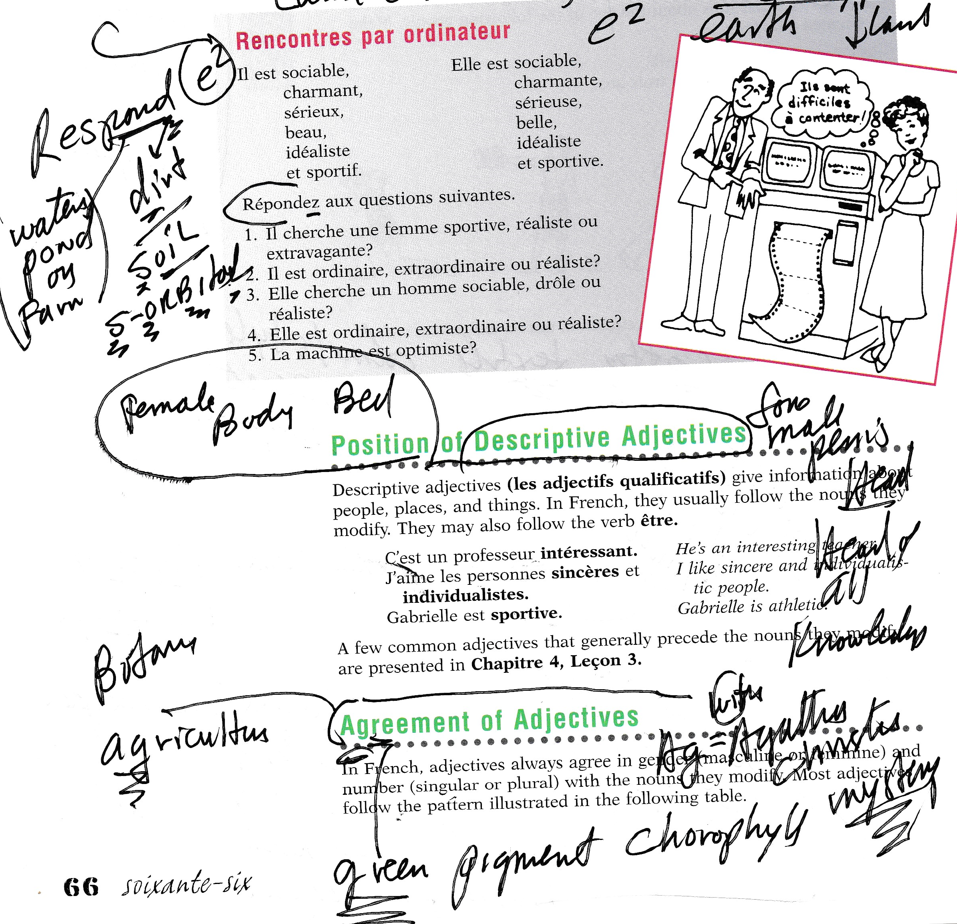 e²
earth
Rencontres par ordinateur
e²
Il est sociable,
charmant,
sérieux,
beau,
idéaliste
et sportif.
Elle est sociable,
charmante,
sérieuse,
belle,
idéaliste
et sportive.
Ils sont
difficiles
à contenter!
Respond
dirt
SOIL
S-ORBital
pond
or
Répondez aux questions suivantes.
1. Il cherche une femme sportive, réaliste ou
extravagante?
2. Il est ordinaire, extraordinaire ou réaliste?
3. Elle cherche un homme sociable, drôle ou
réaliste?
4. Elle est ordinaire, extraordinaire ou réaliste?
5. La machine est optimiste?
Female Body Bed
Position of Descriptive Adjectives
male
Head
Descriptive adjectives (les adjectifs qualificatifs) give information about
people, places, and things. In French, they usually follow the nouns they
modify. They may also follow the verb être.
C'est un professeur intéressant.
J'aime les personnes sincères et
individualistes.
Gabrielle est sportive.
He's an interesting teacher.
I like sincere and individualis-
tic people.
Gabrielle is athletic.
Head of
all
Knowledge
A few common adjectives that generally precede the nouns they modify
are presented in Chapitre 4, Leçon 3.
Botany
Agreement of Adjectives
Ag = Agathus
mystery
In French, adjectives always agree in gender (masculine or feminine) and
number (singular or plural) with the nouns they modify. Most adjectives
follow the pattern illustrated in the following table.
green pigment chorophyll
66 soixante-six